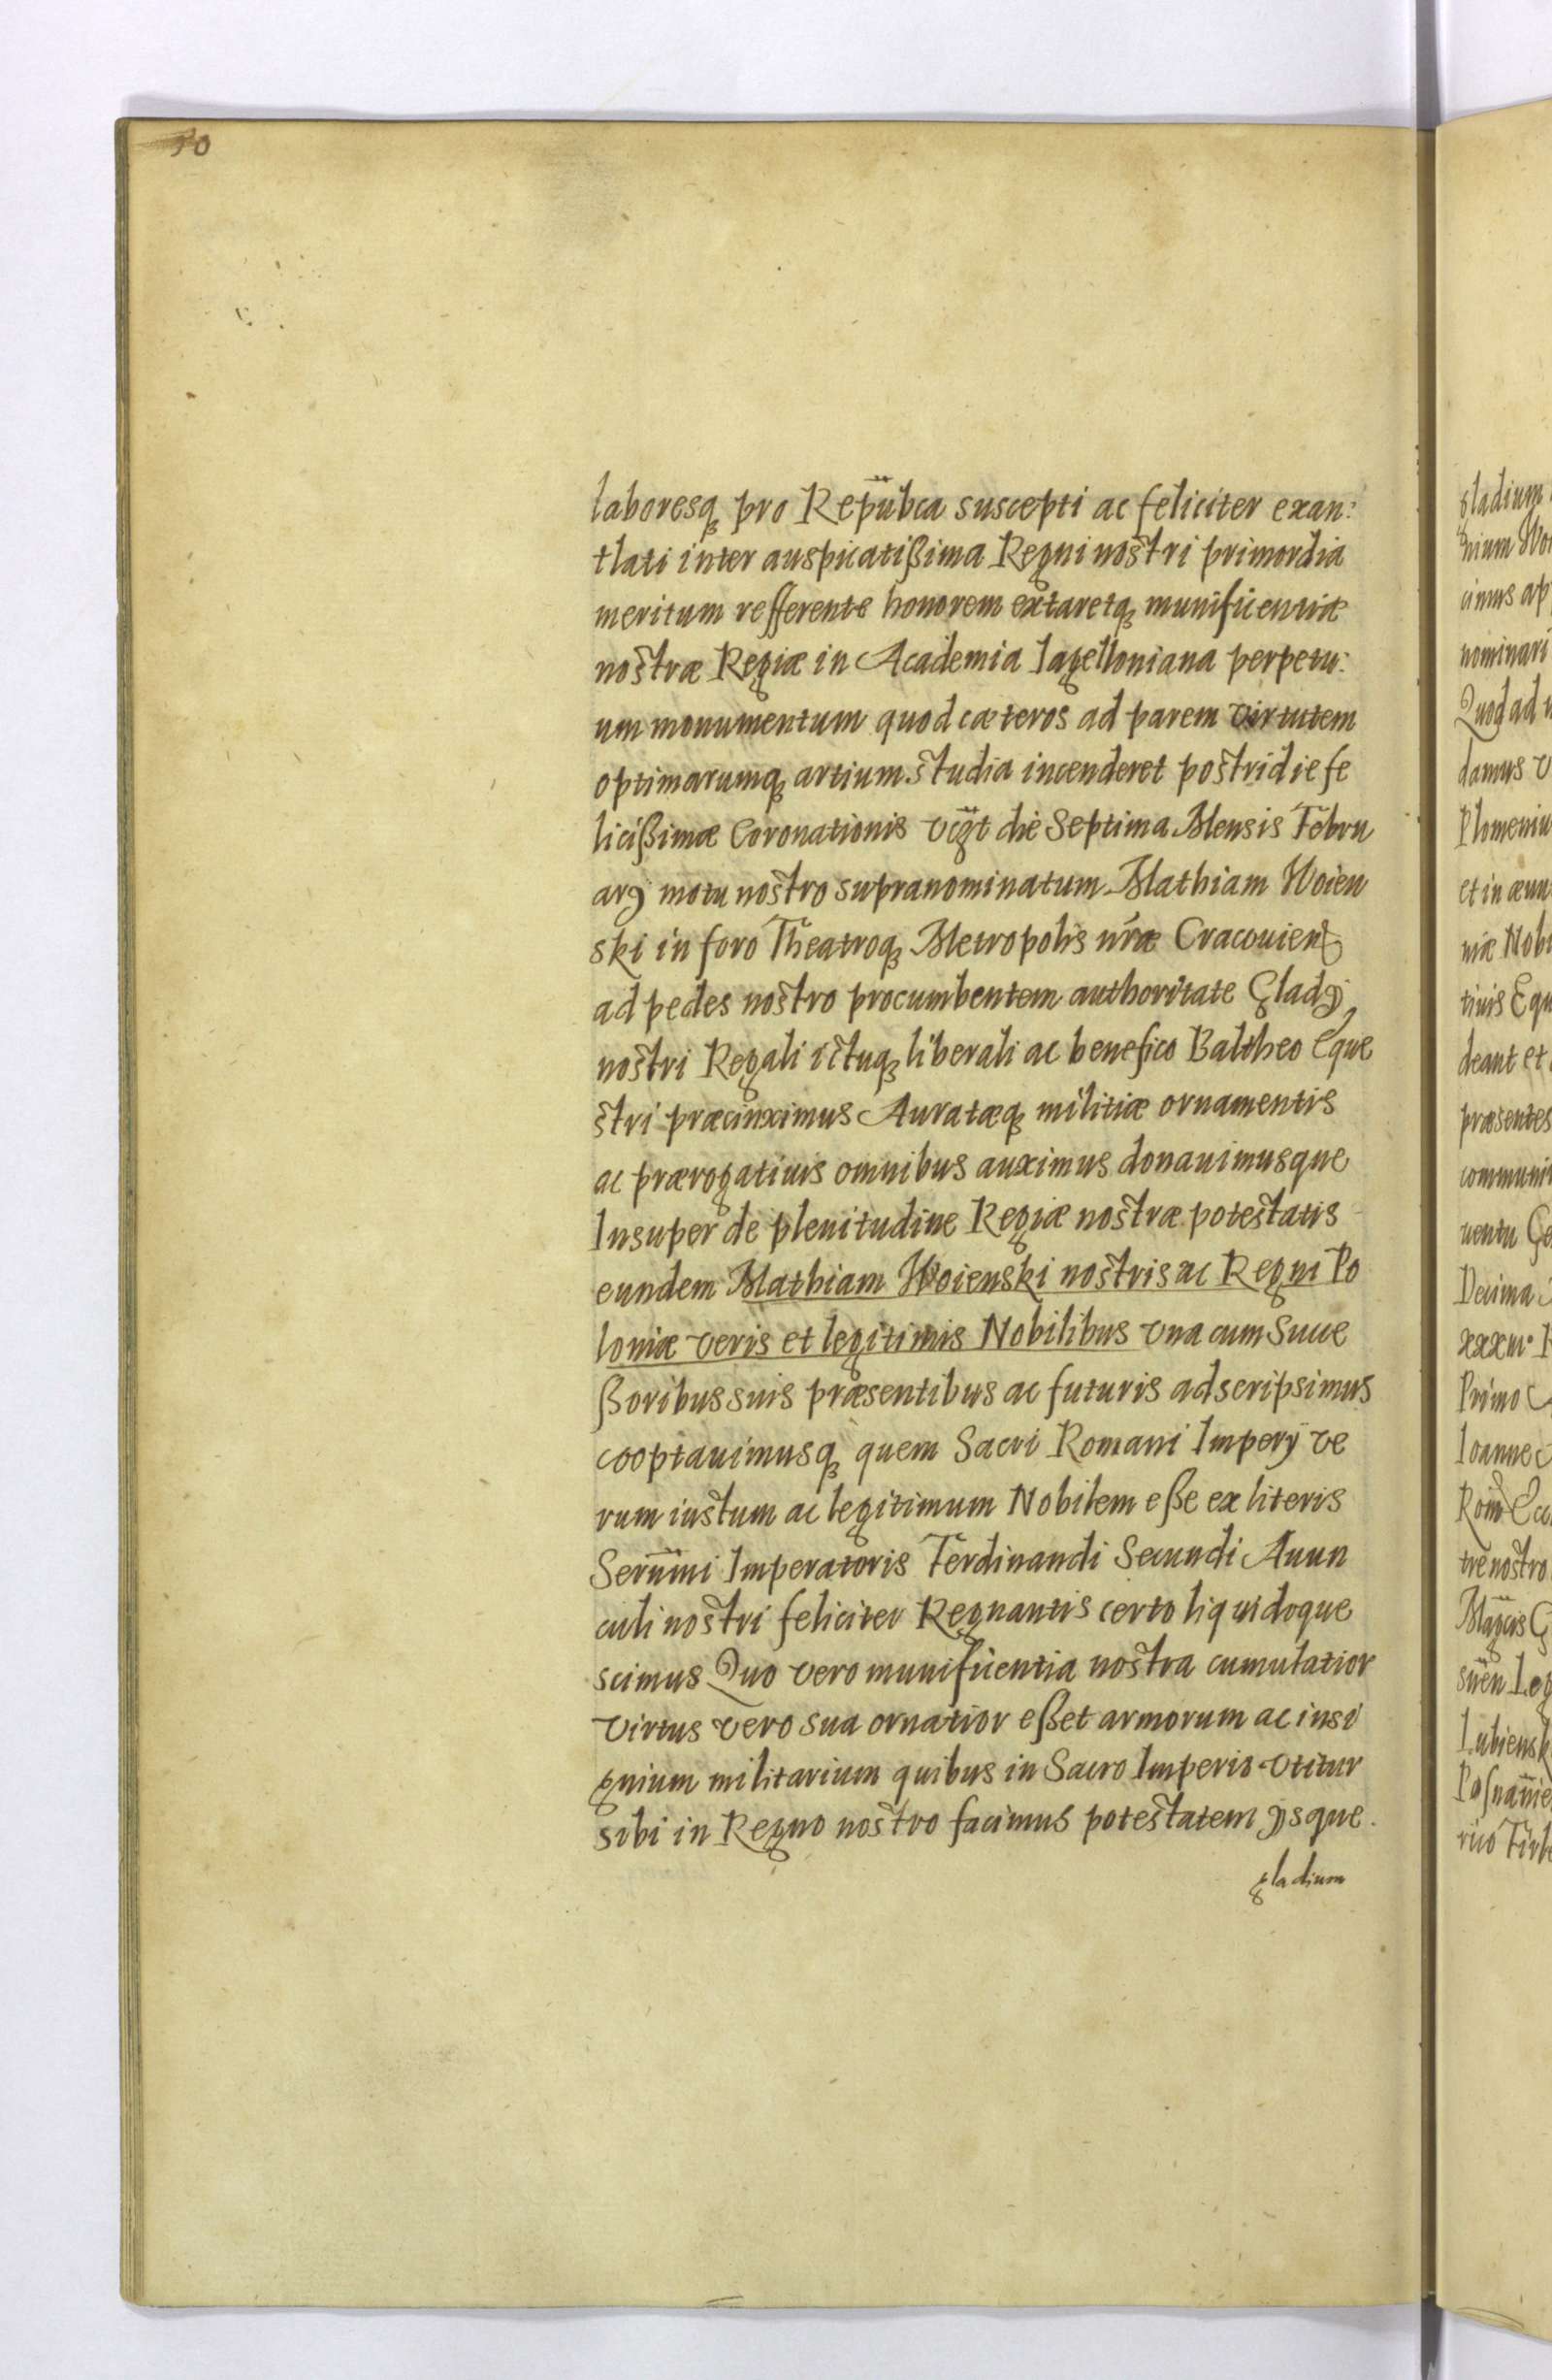 10
laboresq pro Repubca suscepti ac feliciter exan:
tlati inter auspicatißima Regni nostri primordia
meritum refferente honorem extaretq munificentiæ
nostræ Regiæ in Academia Iagelloniana perpetu:
um monumentum quod cæteros ad parem virtutem
optimarumq artium studia incenderet postridie fe
licißimæ Coronationis die Septima Mensis Febru
arij motu nostro supranominatum Mathiam Woien
ski in foro Theatroq Metropolis nræ Cracouien
ad pedes nostro procumbentem authoritate Gladij
nostri Regali ictuq liberali ac benefico Baltheo Eque
stri præcinximus Auratæq militiæ ornamentis
ac prærogatiuis omnibus auximus donauimusque
Insuper de plenitudine Regiæ nostræ potestatis
eundem Mathiam Woienski nostris ac Regni Po
loniæ veris et legitimis Nobilibus vna cum Succe
ßoribus suis præsentibus ac futuris adscripsimus
cooptauimusq quem Sacri Romani Imperij ve
rum iustum ac legitimum Nobilem eße ex literis
Serummi Imperatoris Ferdinandi Secundi Auun
culi nostri feliciter Regnantis certo liquidoque
scimus Quo vero munificentia nostra cumulatior
virtus vero sua ornatior eßet armorum ac insi
gnium militarium quibus in Sacro Imperio vtitur
sibi in Regno nostro facimus potestatem ijsque
gladium
gladium
nium Wo
cimus ap
nominari
Quod ad
damus v
Plomeniu
et in æuu
niæ Nobi
tiuis Equ
deant et
præsentes
communi
uentu Ge
Decima
Primo
Ioanne
tre nostro
Lubiensk